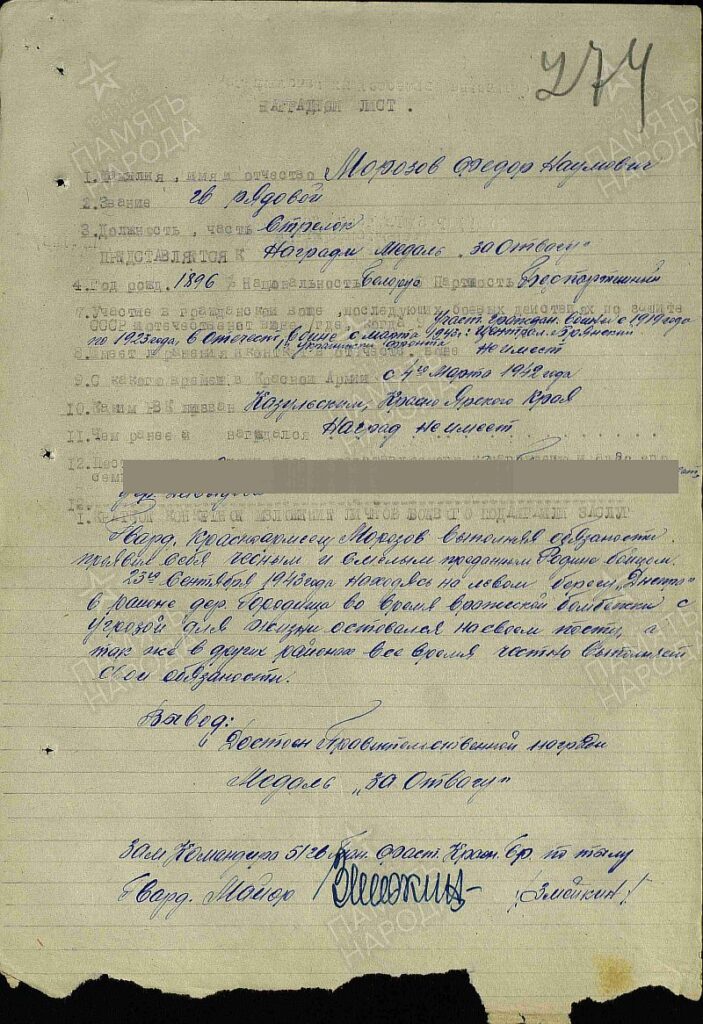 274
НАГРАДНОЙ ЛИСТ.
1. Фамилия, имя и отчество Морозов Федор Наумович
2. Звание гв рядовой
3. Должность, часть Стрелок
ПРЕДСТАВЛЯЕТСЯ К Награди Медаль "За Отвагу"
4. Год рожд. 1896 Национальность Белорус Партность Беспартийный
7. Участие в гражданской войне, последующих боевых действиях по защите
СССР и отечественной войне Участ. Граждан. войны с 1919 года
по 1923 года, в Отечест. войне с марта 1943 г. Централ. и Брянский
и Украински фронта
Неимеет
9. С какого времени в Красной Армии с 4го Марта 1942 года
10. Каким РВК призван Казульским, Красно Ярского Края
11. Чем ранее награждался Наград Неимеет
12.
13.
Гвард. Красноармеец Морозов выполняя обязаности
проявил себя честным и смелым преданным Родине бойцом.
23го Сентября 1943 года находясь на левом берегу "Днепр"
в районе дер. Городища во время вражеской бомбежки с
Угрозой для жизни оставался на своем посту, а
так же в других районах все время честно выполняет
свои обязаности.
Вывод:
Достоен Правительственной награди
Медаль "За Отвагу"
Зам Командира 5/26 Бр. по тылу
Гвард. Майор Змейкин /Змейкин/
ПАМЯТЬ НАРОДА